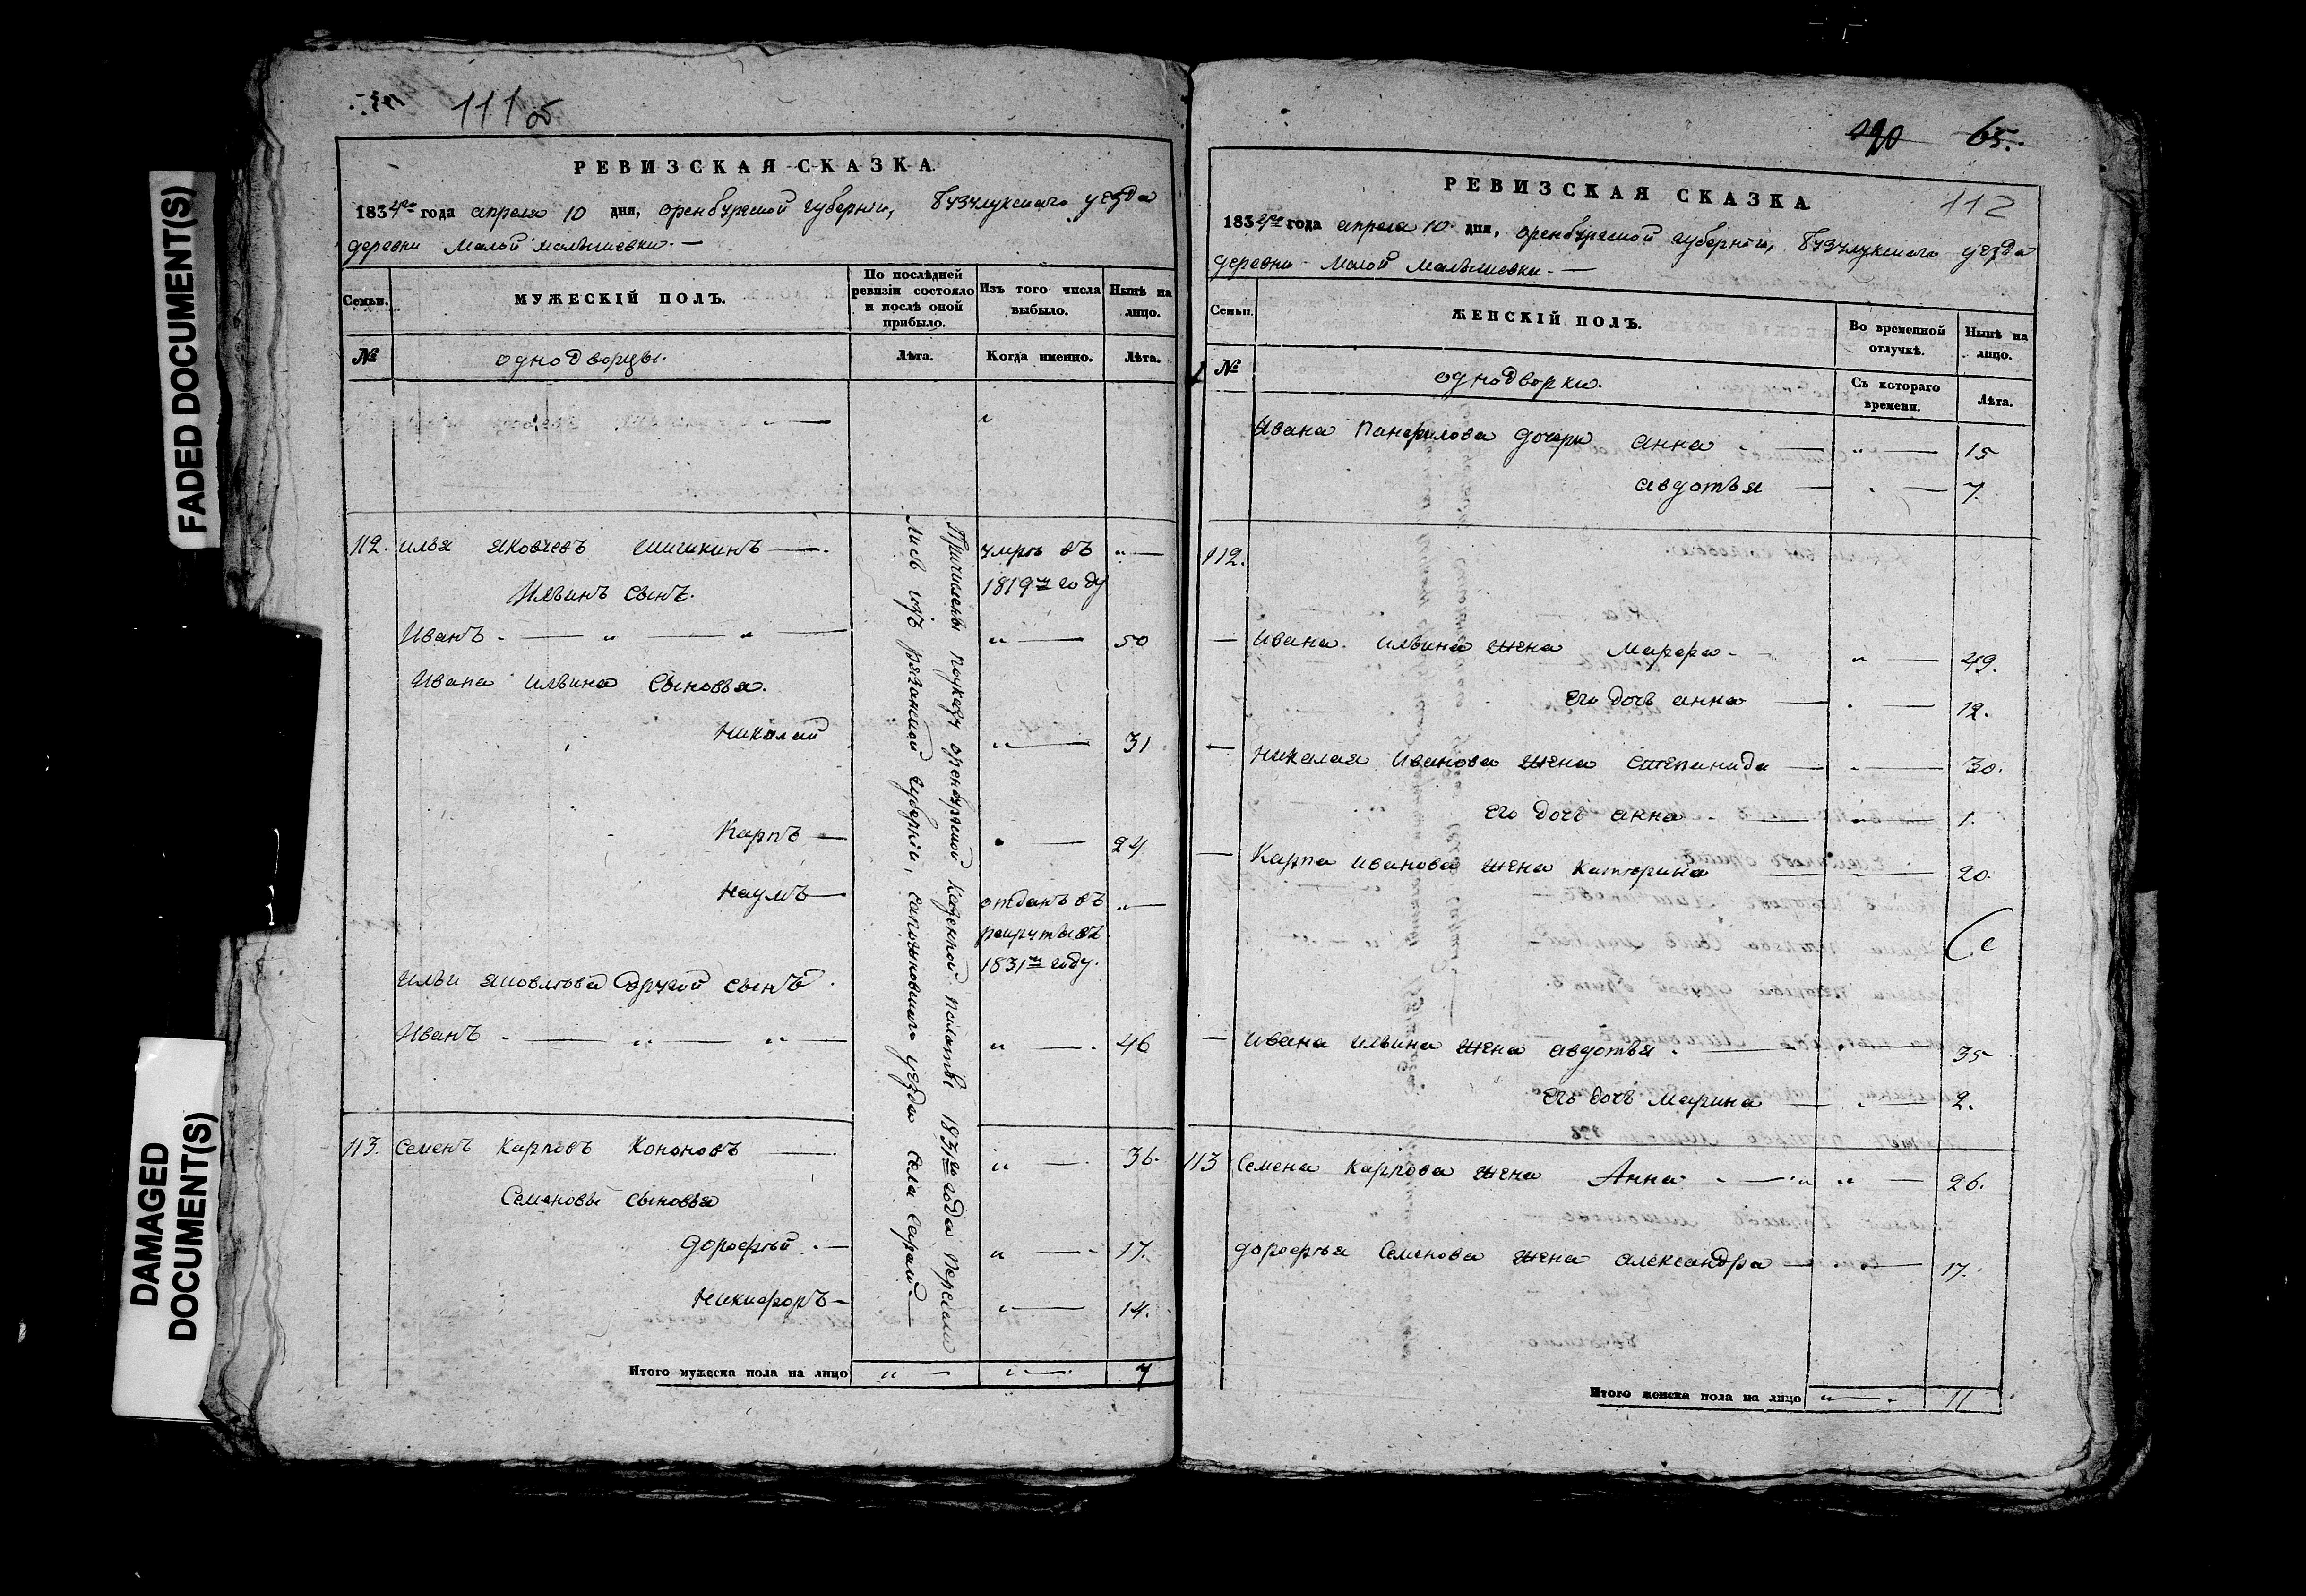 FADED DOCUMENT(S)
DAMAGED
DOCUMENT(S)
111 об
РЕВИЗСКАЯ СКАЗКА
1834го года апреля 10 дня, оренбургской губернии, бузулукского уезда
деревни Малой малышевки. —
Семьи.
МУЖЕСКІЙ ПОЛЪ.
По послѣдней
ревизіи состояло
и послѣ оной
прибыло.
Изъ того числа
выбыло.
Нынѣ на
лицо.
№
однодворцы.
Лѣта.
Когда именно.
Лѣта.
112. илья яковлевъ шишкинъ — умре въ
Ильинъ сынъ. 1819м году
Иванъ 50
Ивана ильина сыновья.
Николай 31
Карпъ 24
наумъ — отданъ въ
рекруты въ
1831м году.
ильи яковлева другой сынъ
Иванъ 46
113. Семенъ Карповъ Кононовъ 36.
Семеновы сыновья
дорофей 17.
никифоръ 14.
Причислены по указу оренбургской казенной палаты 1831го года перешли
лись изъ рязанской губерніи, сапожковского уезда села сараи. —
Итого мужеска пола на лицо 7
65.
112
РЕВИЗСКАЯ СКАЗКА
1834го года апреля 10 дня, оренбургской губерніи, бузулукского уезда
деревни Малой Малышевки. —
Семьи.
ЖЕНСКІЙ ПОЛЪ.
Во временной
отлучкѣ.
Нынѣ на
лицо.
№
однодворки.
Съ котораго
времени.
Лѣта.
Ивана Панфилова дочери анна 15
авдотья 7.
112.
Ивана ильина жена Марфа 49.
его дочь анна 12.
николая Иванова жена степанида 30.
его дочь анна 1.
Карпа иванова жена катерина 20.
Ивана ильина жена авдотья 35
его дочь Марина 2.
113 Семена карпова жена Анна 26.
дорофея Семенова жена александра 17.
Итого женска пола на лицо 11